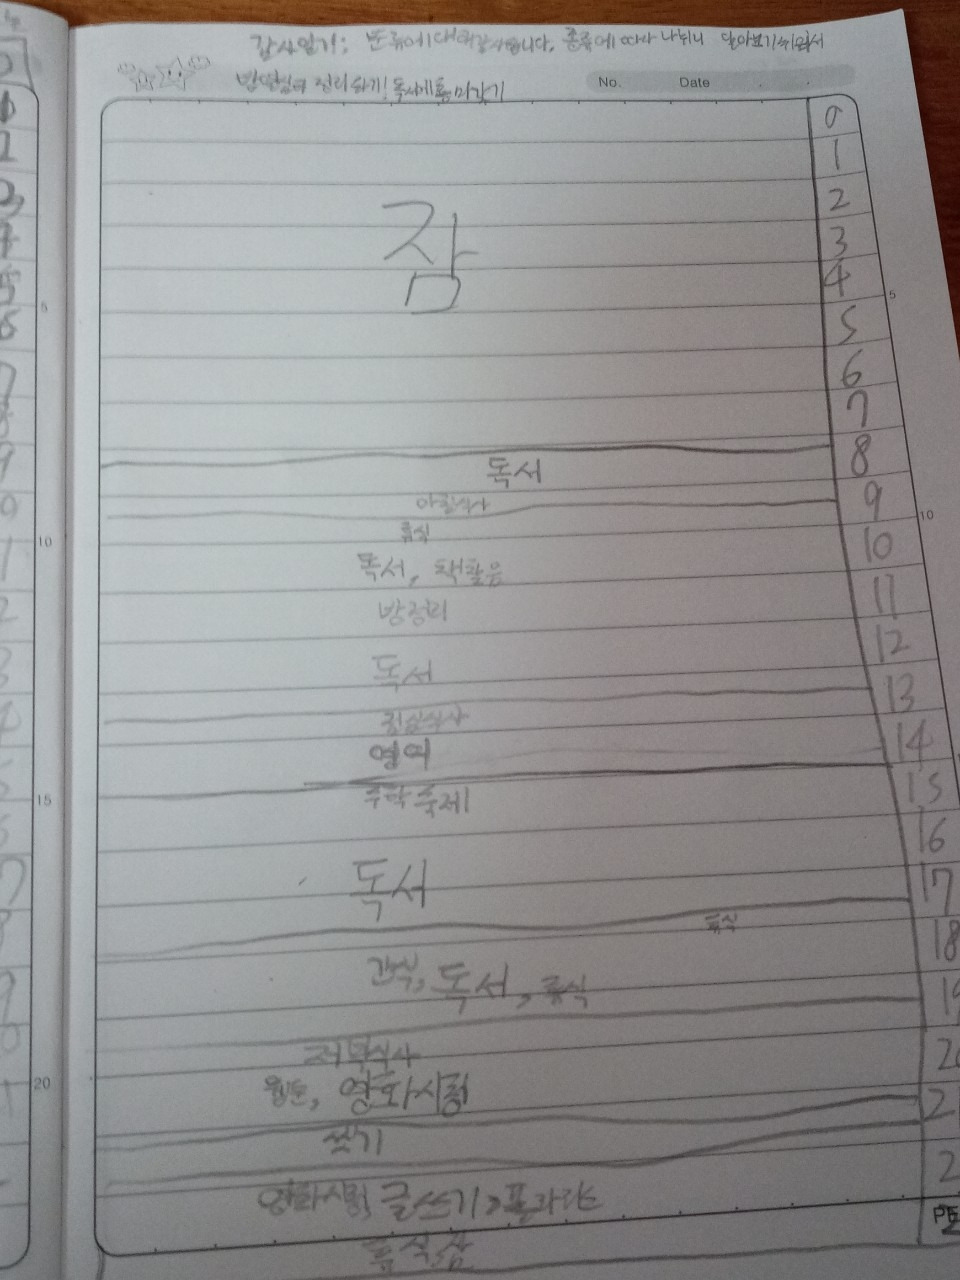 감사일기: 분류에 대해 감사합니다. 종류에 따라 나뉘니 알아보기 쉬워서
정리하기! 독서에 흥미갖기
No. Date
0
1
잠 2
3
4
5
6
7
독서 8
아침식사 9
휴식
독서, 책활음 10
방정리 11
12
독서
13
점심식사
영어 14
수학숙제 15
16
독서 17
휴식
간식, 독서, 휴식 18
저녁식사
웹툰, 영화시청
씻기
영화시청, 글쓰기, 플라타스
휴식, 잠
5
10
15
20
5
10